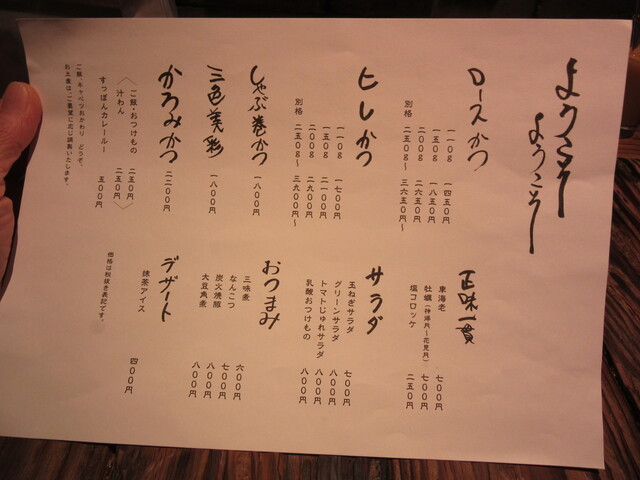 ようこそ
ようこそ
ロースかつ
一一〇g 一四五〇円
一五〇g 一八五〇円
二〇〇g 二六五〇円
別格 二五〇g〜 三六五〇円〜
ヒレかつ
一一〇g 一七〇〇円
一五〇g 二一〇〇円
二〇〇g 二九〇〇円
別格 二五〇g〜 三九〇〇円〜
しゃぶ巻かつ 一八〇〇円
三色美彩 一八〇〇円
かろみかつ 二二〇〇円
ご飯・おつけもの 二五〇円
汁わん 二五〇円
すっぽんカレールー 五〇〇円
ご飯、キャベツおかわり、どうぞ。
正味一貫
車海老 七〇〇円
牡蠣 七〇〇円
塩コロッケ 二五〇円
サラダ
玉ねぎサラダ 七〇〇円
グリーンサラダ 八〇〇円
トマトじゅれサラダ 八〇〇円
乳酸おつけもの 八〇〇円
おつまみ
三味煮 六〇〇円
なんこつ 七〇〇円
炭火焼豚 八〇〇円
大豆角煮 八〇〇円
デザート
抹茶アイス 四〇〇円
価格は税抜き表記です。